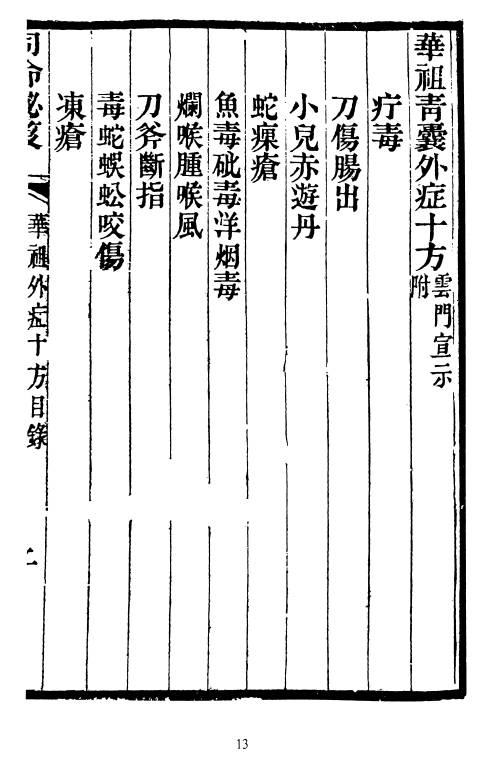 華祖青囊外症十方雲門宣示附
疔毒
刀傷腸出
小兒赤遊丹
蛇瘰瘡
魚毒砒毒洋烟毒
爛喉腫喉風
刀斧斷指
毒蛇蜈蚣咬傷
凍瘡
命秘笈
華祖外症十方目錄
13